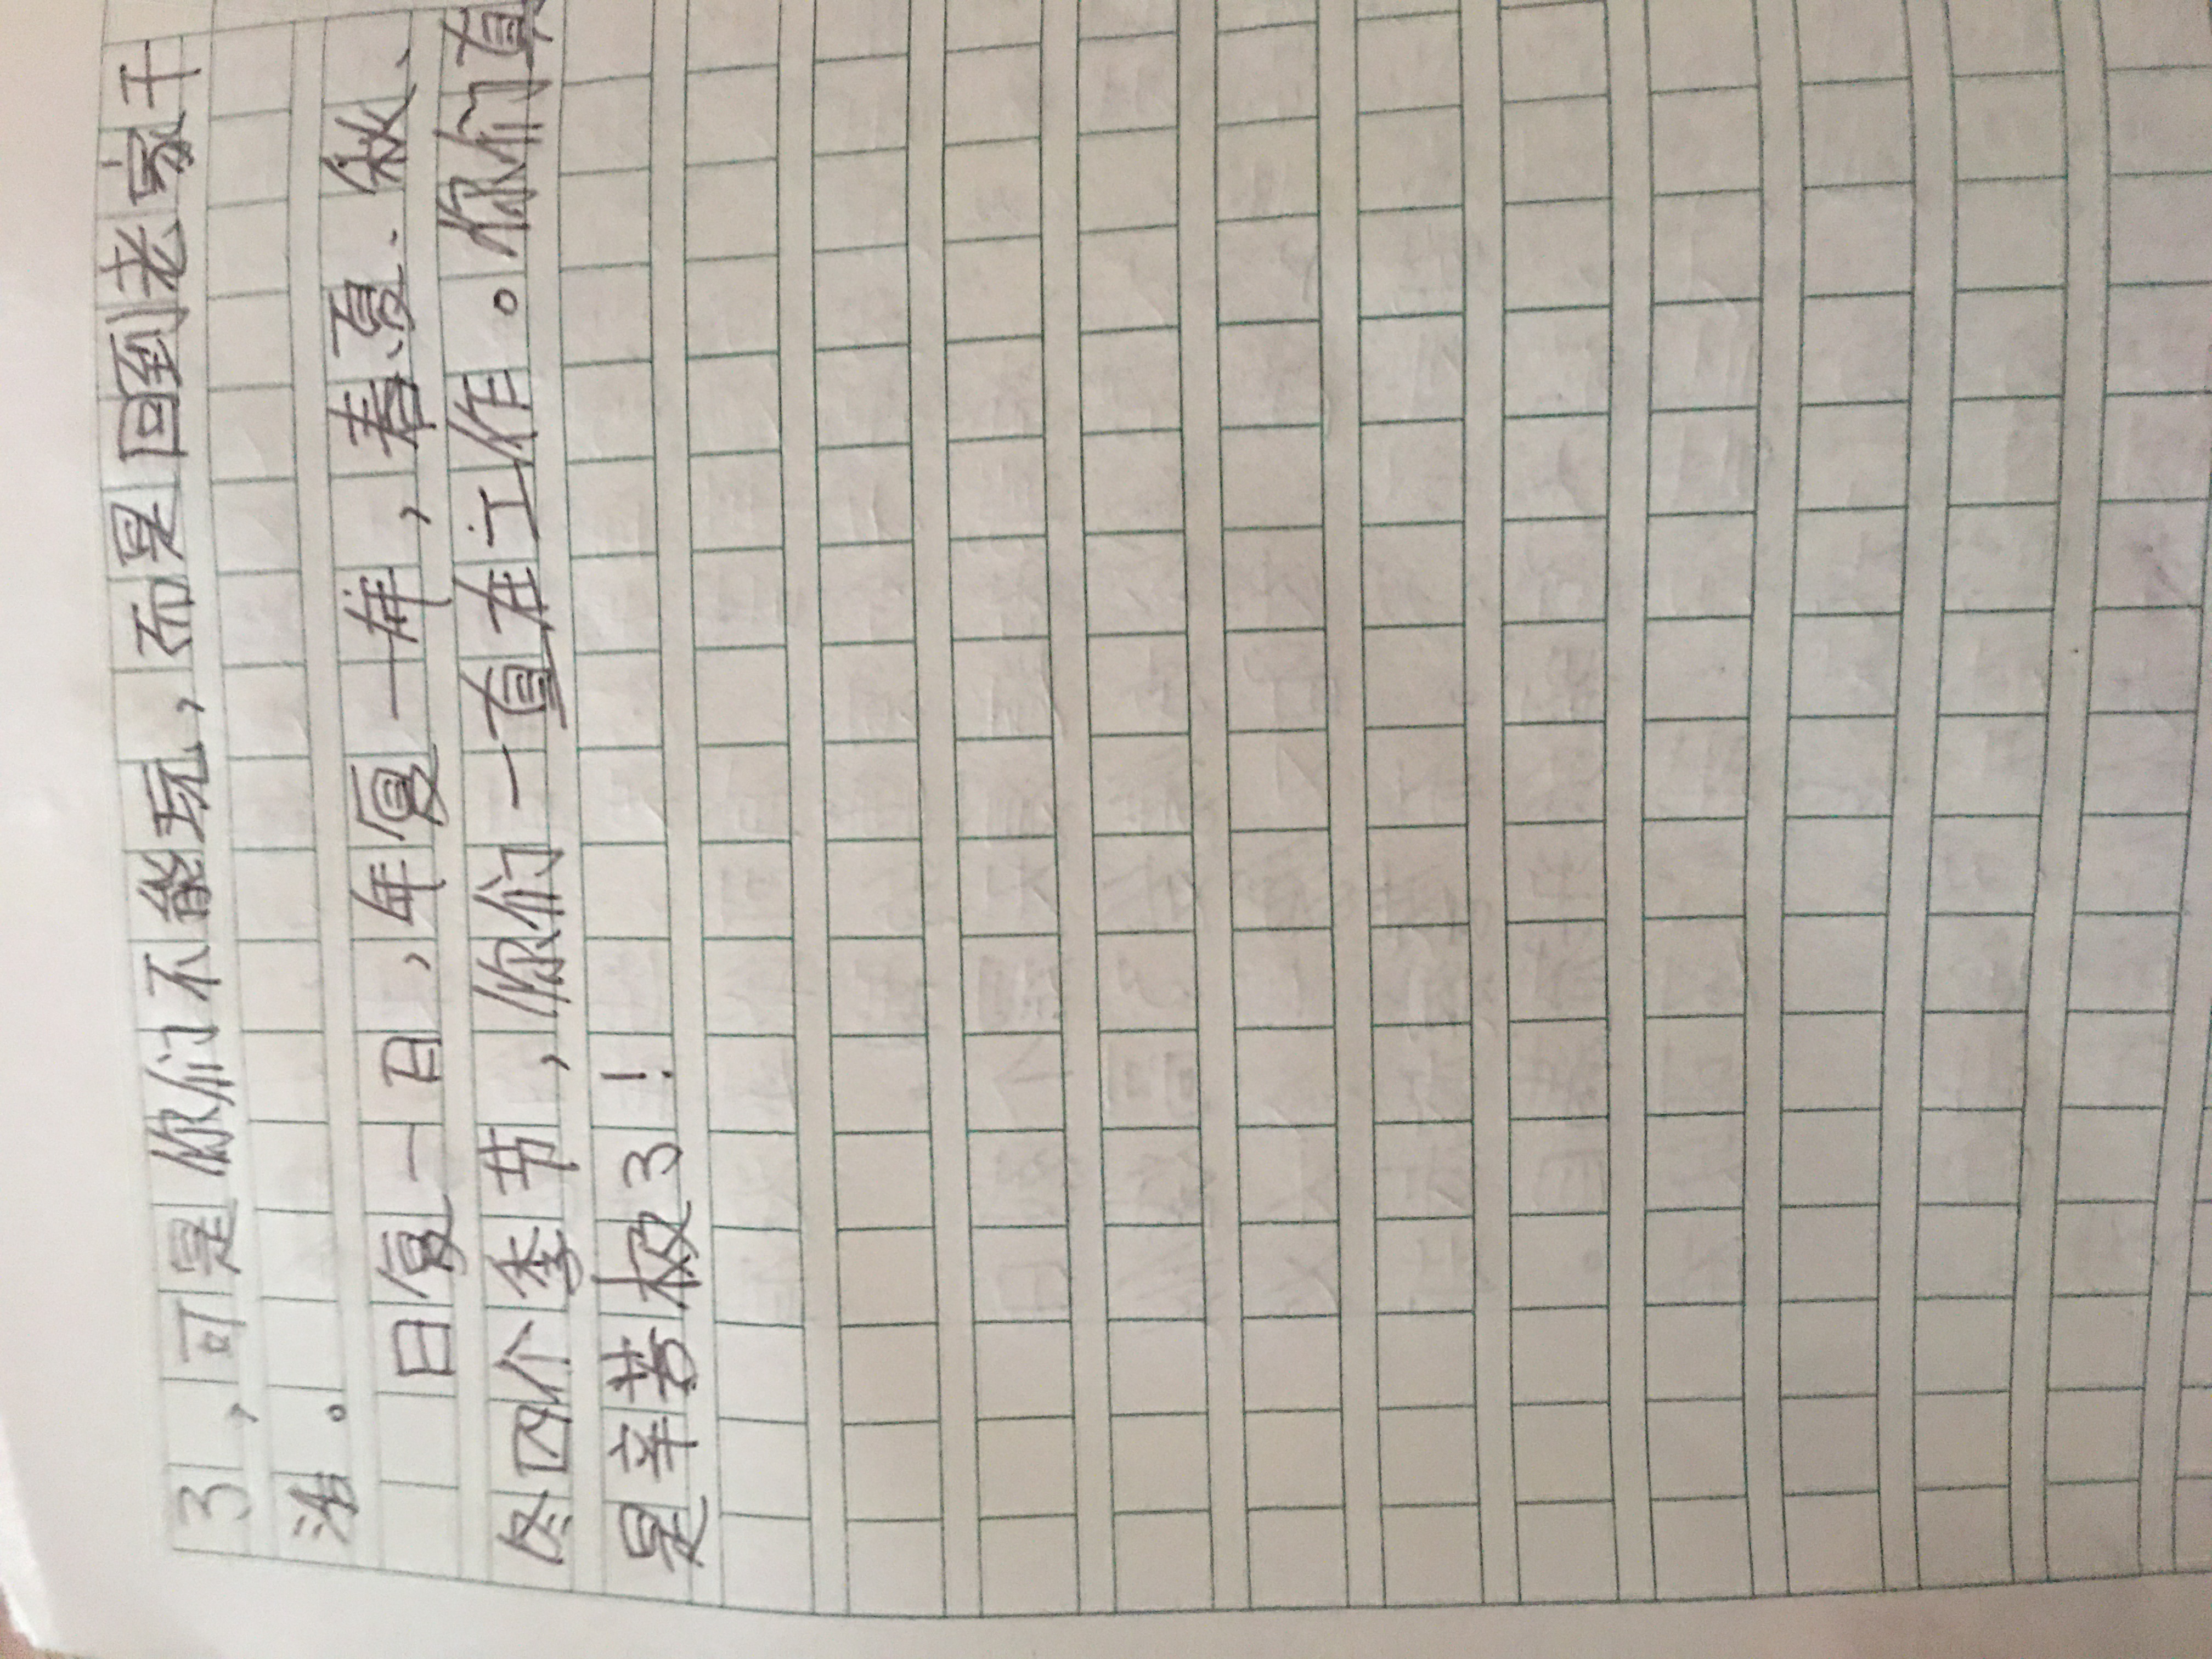 了，可是你们不能玩，而是回到老家干
活。
日复一日，年复一年，春、夏、秋、
冬四个季节，你们一直在工作。你们真
是辛苦极了！